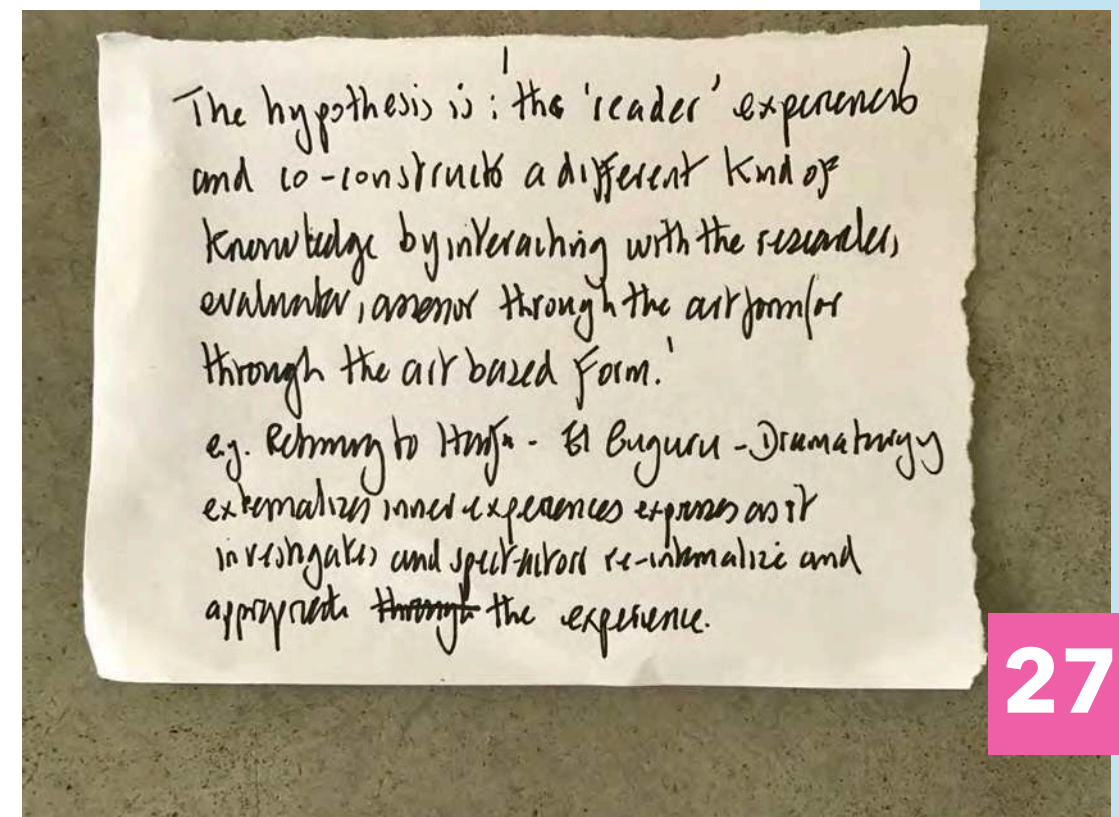 The hypothesis is : 'the 'reader' experiences
and co-constructs a different kind of
knowledge by interacting with the researcher,
evaluator, assessor through the art form/or
through the art based form.'
e.g. Returning to - El Buguru - Dramaturgy
externalizes inner experiences exposes as it
investigates and spect-actors re-internalize and
appropriate through the experience.
27